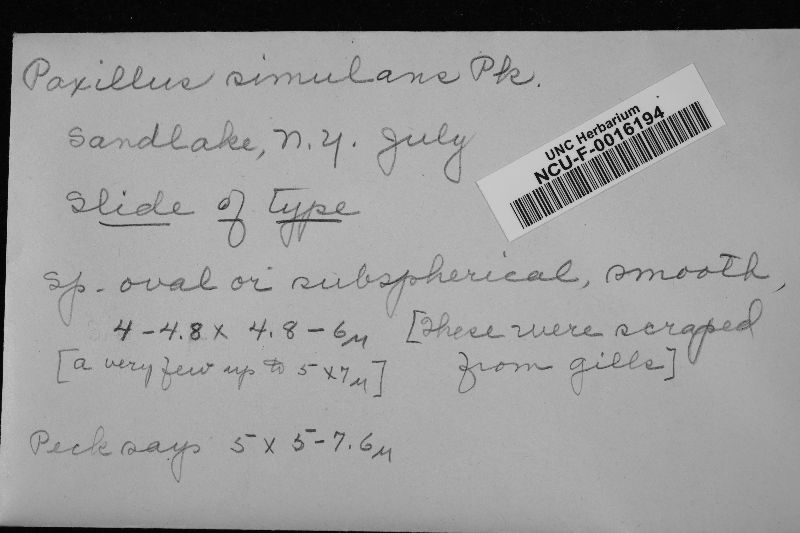 Paxillus simulans Pk.
UNC Herbarium
NCU-F-0016194
Sandlake, N.Y. July
Slide of type
Sp. oval or subspherical, smooth,
4-4.8 x 4.8-6μ [These were scraped
from gills]
[a very few up to 5 x 7μ]
Peck says 5 x 5-7.6μ